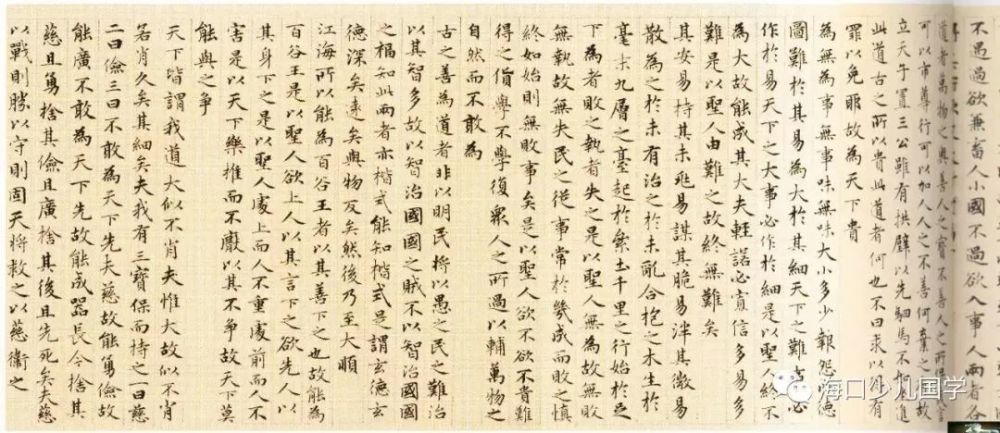 不過欲兼畜人小國不過欲入事人兩者各
道者萬物之奧善人之寶不善人之所保言
可以市尊行可以加人人之不善何棄之故
立天子置三公雖有拱璧以先駟馬不如進
此道古之所以貴此道者何也不曰求以有
罪以免耶故為天下貴
為無為事無事味無味大小多少報怨以德
圖難於其易為大於其細天下之難事必
作於易天下之大事必作於細是以聖人終不
為大故能成其大夫輕諾必寡信多易多
難是以聖人由難之故終無難矣
其安易持其未兆易謀其脆易泮其微易
散為之於未有治之於未亂合抱之木生於
毫末九層之臺起於累土千里之行始於足
下為者敗之執者失之是以聖人無為故無敗
無執故無失民之從事常於幾成而敗之慎
終如始則無敗事矣是以聖人欲不欲不貴難
得之貨學不學復眾人之所過以輔萬物之
自然而不敢為
古之善為道者非以明民將以愚之民之難治
以其智多故以智治國國之賊不以智治國國
之福知此兩者亦楷式能知楷式是謂玄德玄
德深矣遠矣與物反矣然後乃至大順
江海所以能為百谷王者以其善下之也故能為
百谷王是以聖人欲上人以其言下之欲先人以
其身下之是以聖人處上而人不重處前而人不
害是以天下樂推而不厭以其不爭故天下莫
能與之爭
天下皆謂我道大似不肖夫惟大故似不肖
若肖久矣其細矣夫我有三寶保而持之一曰慈
二曰儉三曰不敢為天下先夫慈故能勇儉故
能廣不敢為天下先故能成器長今捨其
慈且勇捨其儉且廣捨其後且先死矣夫慈
以戰則勝以守則固天將救之以慈衛之
海口少儿国学